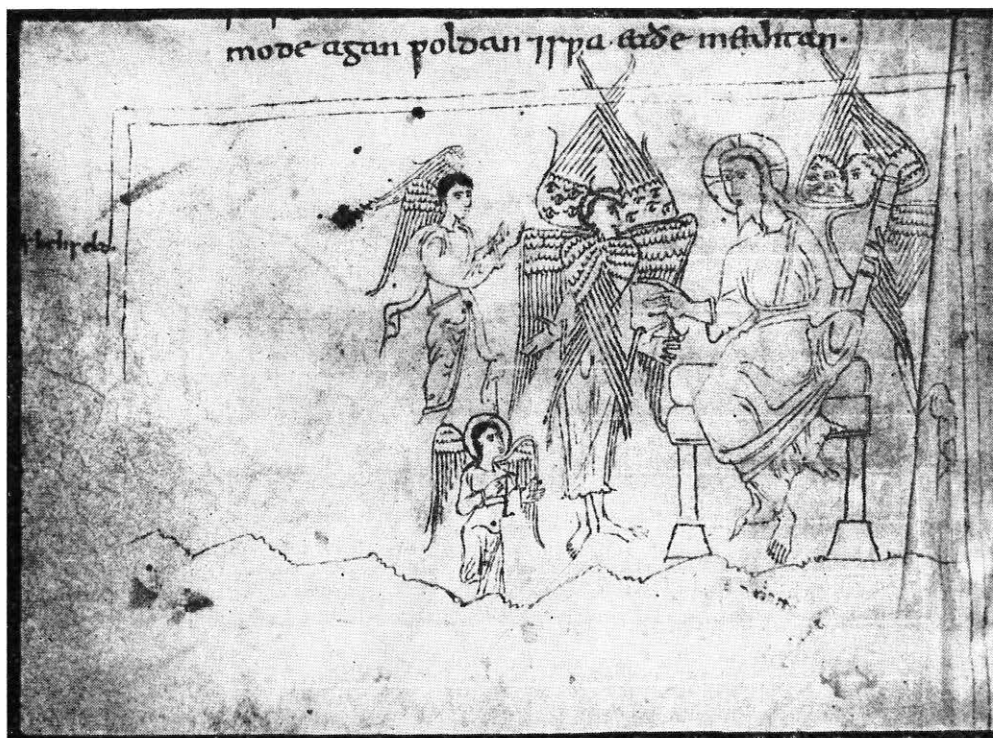 mode agan ƿoldan ⁊ sƿa eaðe meahtan·